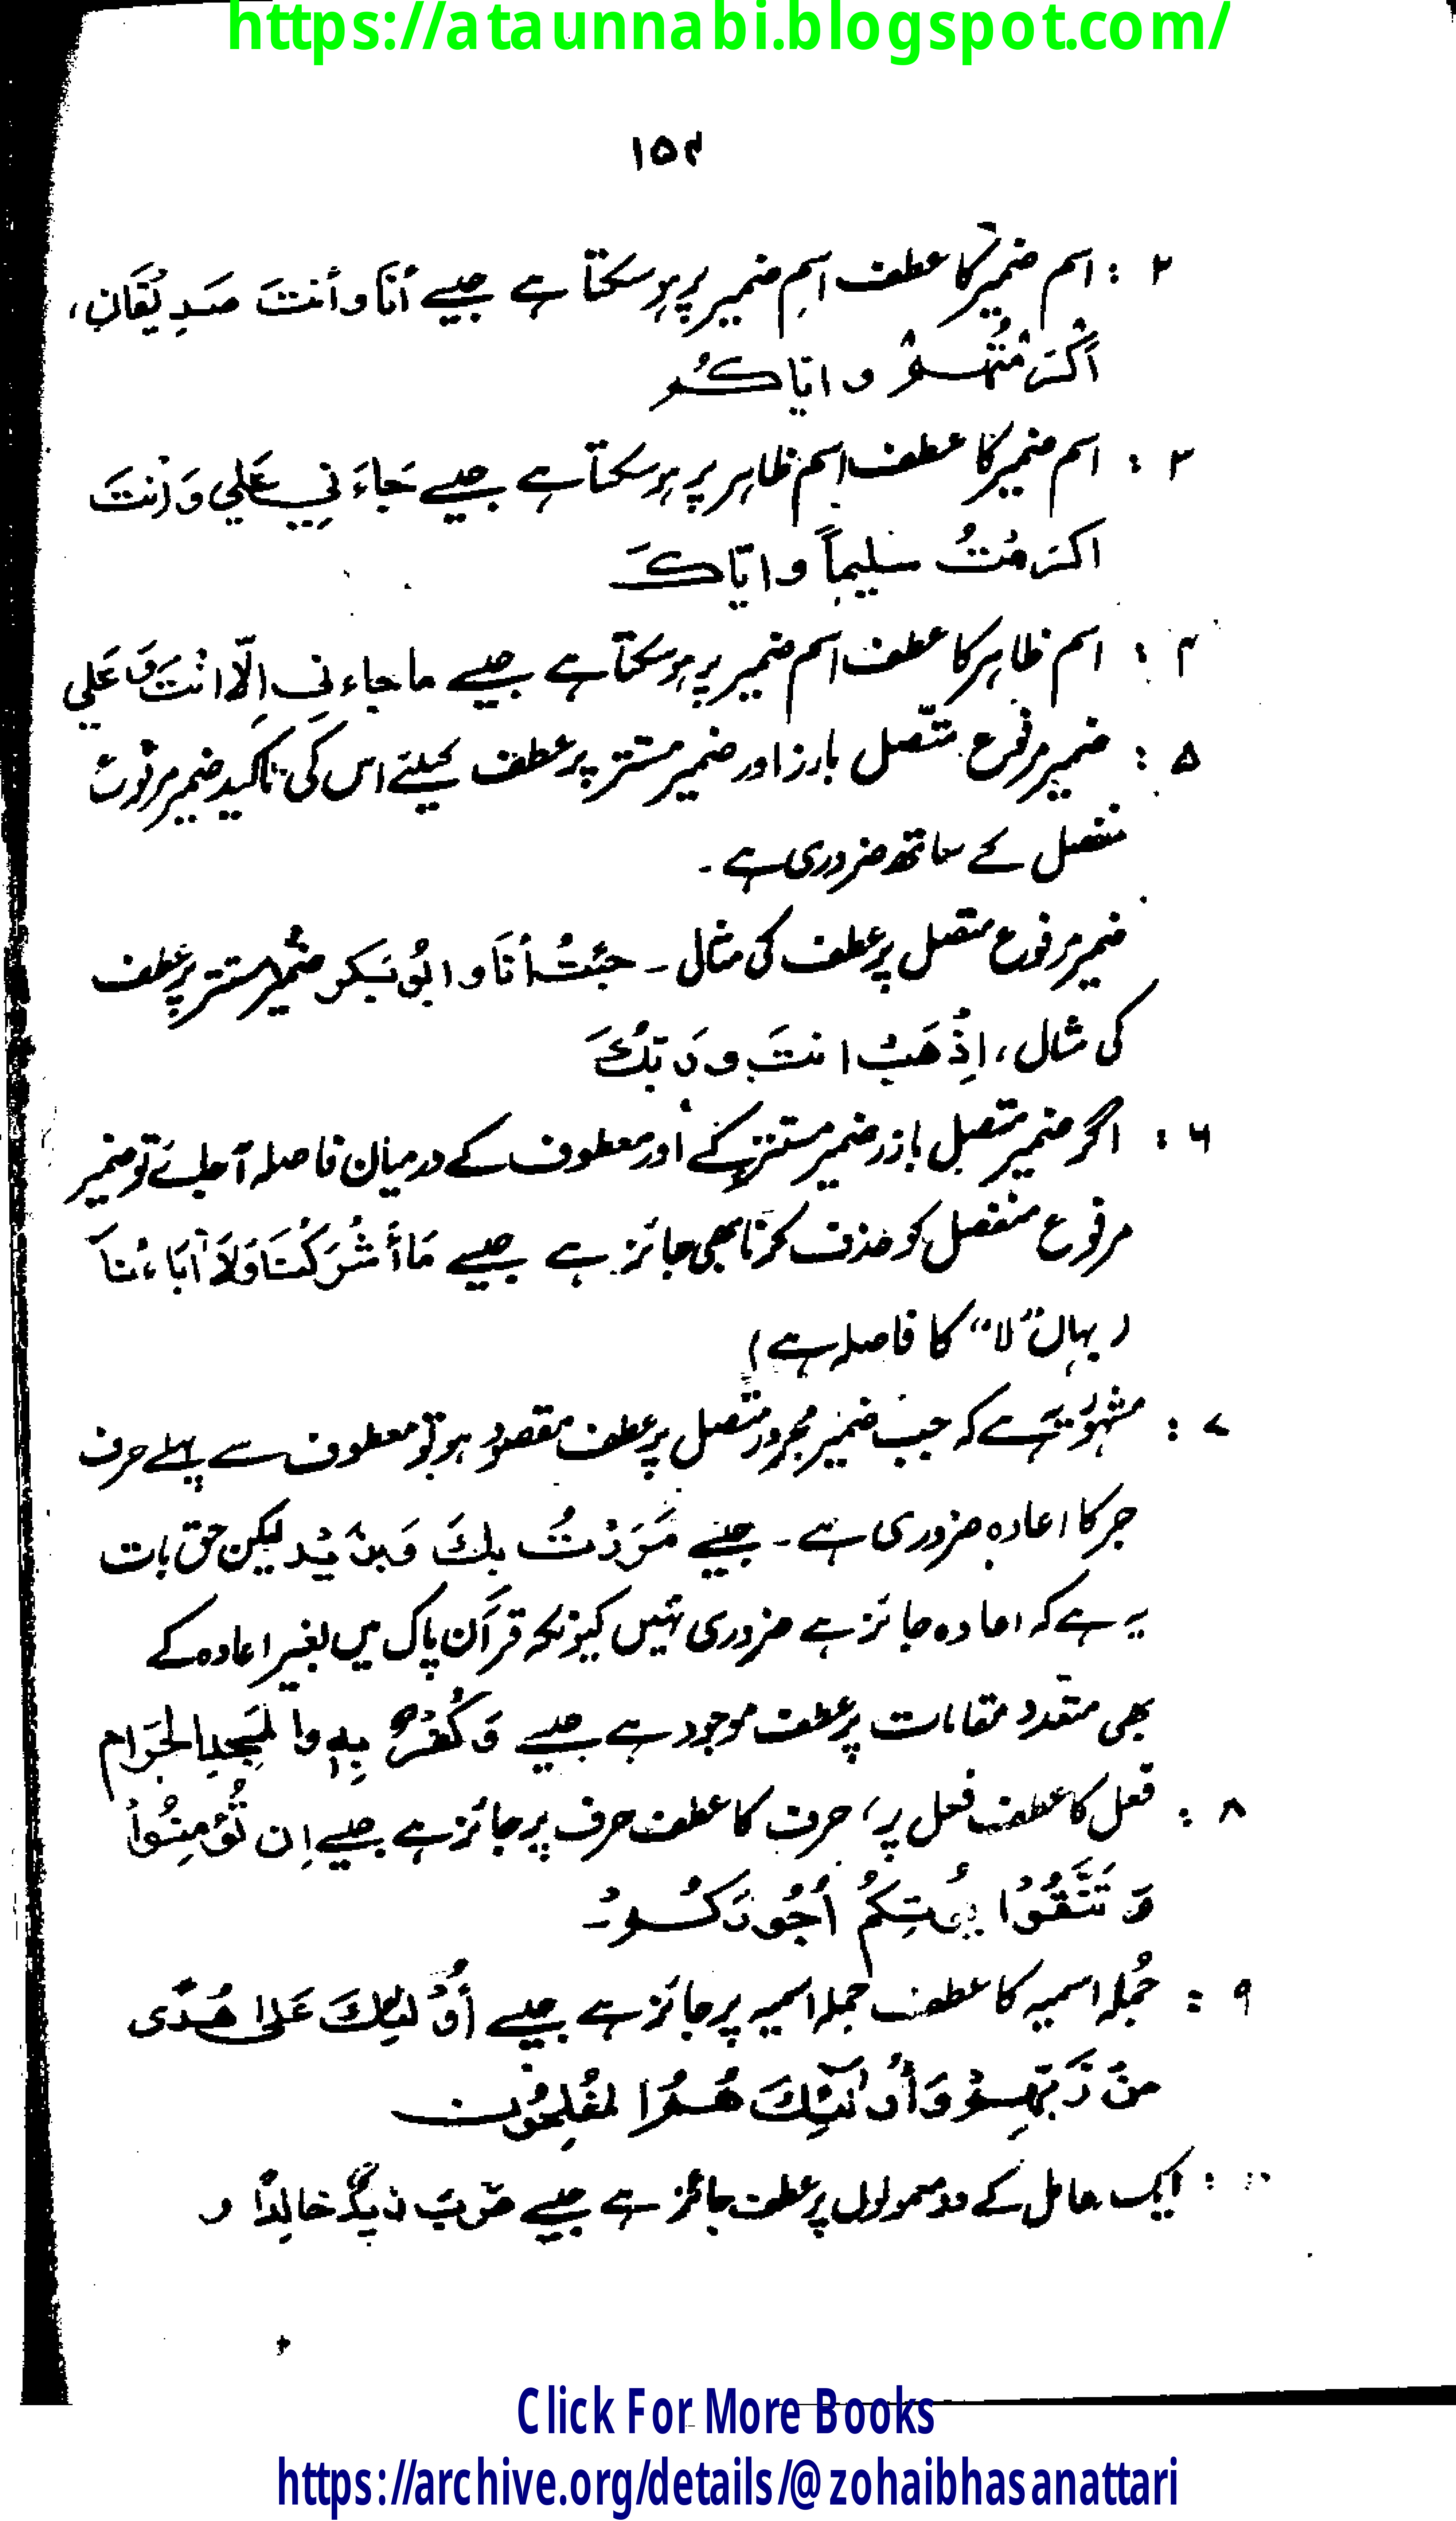 https://ataunnabi.blogspot.com/
۱۵۴
۲ : اسم ضمیر کا عطف اسمِ ضمیر پر ہو سکتا ہے جیسے أنَا و أنتَ صَدِیْقَانِ،
اَکْرَمْتُهُمْ و ایّاکُم
۳ : اسم ضمیر کا عطف اسم ظاہر پر ہو سکتا ہے جیسے جَاءَ نِی عَلِی وَ اَنتَ
اکرَمْتُ سَلیماً و ایّاکَ
۴ : اسم ظاہر کا عطف اسم ضمیر پر ہو سکتا ہے جیسے ما جاء نِی اِلّا انْتَ وَ عَلِی
۵ : ضمیر مرفوع متّصل بارز اور ضمیر مستتر پر عطف کیلئے اس کی تاکید ضمیر مرفوع
منفصل کے ساتھ ضروری ہے ۔
ضمیر مرفوع متصل پر عطف کی مثال ۔ جِئتُ أنَا و ابُو بَکر ضمیر مستتر پر عطف
کی مثال، اِذْهَبْ انتَ و رَبّكَ
۶ : اگر ضمیر متصل بارز ضمیر مستتر کے اور معطوف کے درمیان فاصلہ آ جائے تو ضمیر
مرفوع منفصل کو حذف کرنا بھی جائز ہے جیسے مَا أَشْرَكْنَا وَلَا آبَاءُنَا
( یہاں "لا" کا فاصلہ ہے )
۷ : مشہور یہ ہے کہ جب ضمیر مجرور متصل پر عطف مقصود ہو تو معطوف سے پہلے حرف
جر کا اعادہ ضروری ہے ۔ جیسے مَرَرْتُ بِكَ وَ بِزَیْد لیکن حق بات
یہ ہے کہ اعادہ جائز ہے ضروری نہیں کیونکہ قرآن پاک میں بغیر اعادہ کے
بھی متعدد مقامات پر عطف موجود ہے جیسے وَ كُفْرٌ بِهٖ وا لمَسجِدِ الحَرَام
۸ : فعل کا عطف فعل پر، حرف کا عطف حرف پر جائز ہے جیسے اِن تُؤمِنُوا
وَ تَتَّقُوْا یُؤتِكُمْ أُجُورَكُمْ ۔
۹ : جُملہ اسمیہ کا عطف جملہ اسمیہ پر جائز ہے جیسے أُوْلٰئِكَ عَلٰی هُدًی
مِنْ رَّبِّهِمْ وَ أُولٰئِكَ هُمُ المُفْلِحُون
: ایک عامل کے دو معمولوں پر عطف جائز ہے جیسے ضَرَبَ زَیدٌ خالِدًا و
Click For More Books
https://archive.org/details/@zohaibhasanattari